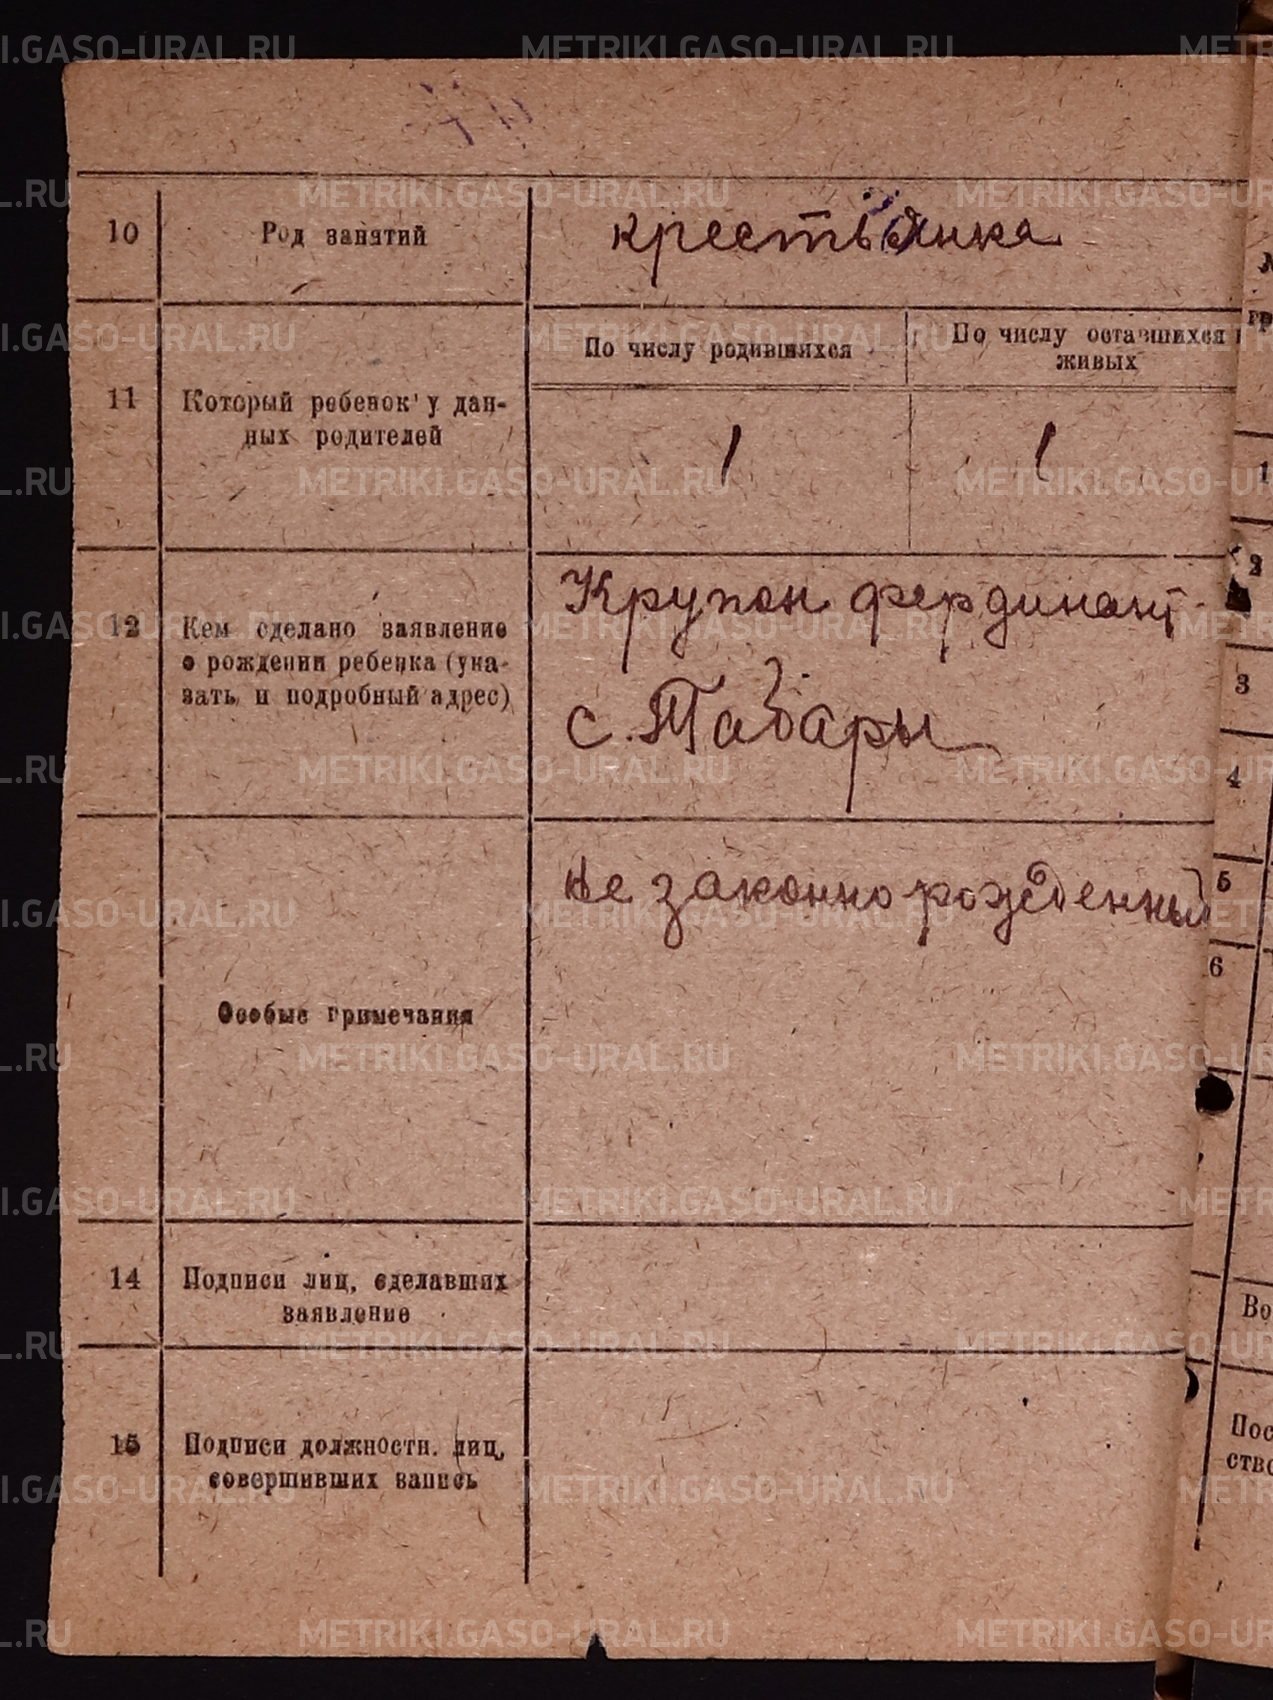 10 Род занятий крестьянка
11 Который ребенок у дан-
ных родителей
По числу родившихся
По числу оставшихся
живых
1 1
12 Кем сделано заявление
о рождении ребенка (ука-
зать и подробный адрес)
Крупан фердинант
с. Табары
Особые примечания
не законно рожденный
14 Подписи лиц, сделавших
заявление
15 Подписи должностн. лиц,
совершивших запись
1
2
3
4
5
6
METRIKI.GASO-URAL.RU